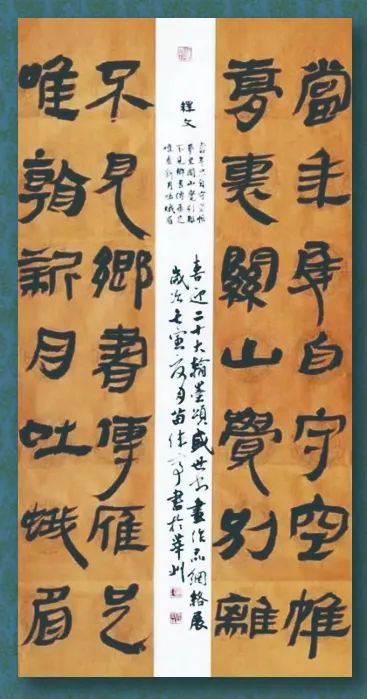 當年只自守空帷
夢裏關山覺別離
釋文
当年只自守空帷
夢里關山覺別離
不見鄉書傳雁足
唯看新月吐蛾眉
喜迎二十大翰墨頌盛世书畫作品網絡展
歲次壬寅夏月苗書於華州
不見鄉書傳雁足
唯看新月吐蛾眉